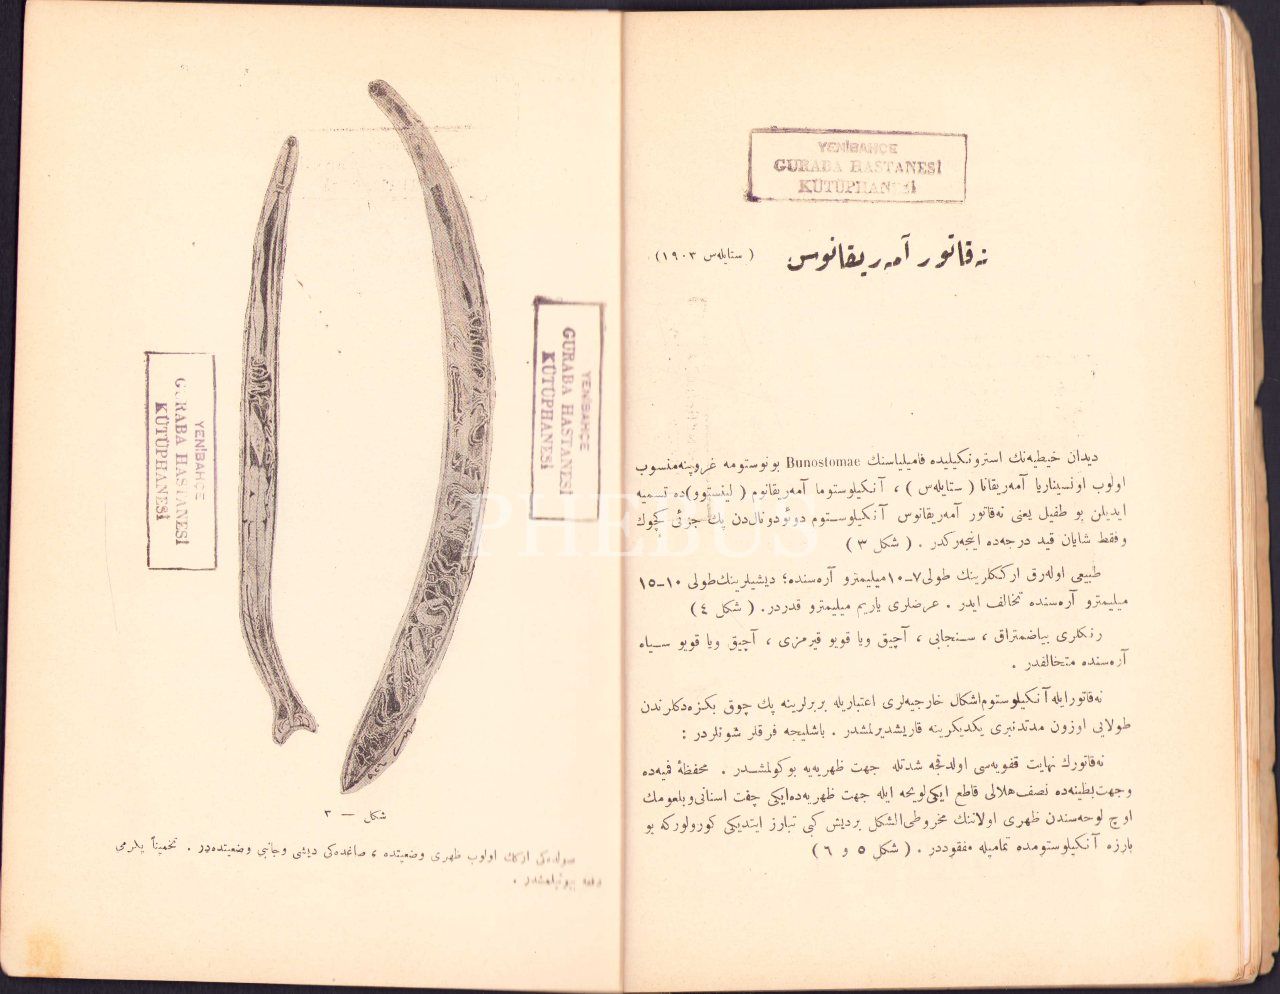 YENİBAHÇE
GURABA HASTANESİ
KÜTÜPHANESİ
نه‌قاتور آمه‌ریقانوس ( ستایله‌س ١٩٠٣ )
دیدان خیطیه‌نك استرونگیلیده فامیلیاسنك Bunostomae بونوستومه غروپنه‌منسوب
اولوب اونسیناریا آمه‌ریقانا ( ستایله‌س ) ، آنكیلوستوما آمه‌ریقانوم ( لینستوو)ده تسمیه
ایدیلن بو طفیل یعنی نه‌قاتور آمه‌ریقانوس آنكیلوستوم دوئودونال‌دن پك جزئی كچوك
وفقط شایان قید درجه‌ده اینجه‌ركدر . ( شكل ٣ )
طبیعی اوله‌رق ارككلرینك طولی ٧ــ١٠ میلیمترو آره‌سنده؛ دیشیلرینك‌طولی ١٠ــ١٥
میلیمترو آره‌سنده تخالف ایدر . عرضلری یاریم میلیمترو قدردر. ( شكل ٤ )
رنكلری بیاضمتراق ، سنجابی ، آچیق ویا قویو قیرمزی ، آچیق ویا قویو سیاه
آره‌سنده متخالفدر .
نه‌قاتورایله آنكیلوستوم‌اشكال خارجیه‌لری اعتباریله بربرلرینه پك چوق بكزه‌دكلرندن
طولایی اوزون مدتدنبری یكدیكرینه قاریشدیرلمشدر . باشلیجه فرقلر شونلردر :
نه‌قاتورك نهایت قفویه‌سی اولدقجه شدتله جهت ظهریه‌یه بوكولمشدر . محفظهٔ فمیه‌ده
وجهت‌بطنیه‌ده نصف‌هلالی قاطع ایكی‌لویحه ایله جهت ظهریه‌ده‌ایكی چفت اسنانی‌وبلعومك
اوچ لوحه‌سندن ظهری اولاننك مخروطی‌الشكل بردیش كی تبارز ایتدیكی كورولوركه بو
بارزه آنكیلوستومده تمامیله مفقوددر . ( شكل ٥ و ٦ )
YENİBAHÇE
GURABA HASTANESİ
KÜTÜPHANESİ
YENİBAHÇE
GURABA HASTANESİ
KÜTÜPHANESİ
شكل — ٣
صولده‌كی اركك اولوب ظهری وضعیتده ، صاغده‌كی دیشی وجانبی وضعیتده‌در . تخمیناً یكرمی
دفعه بیولتلمشدر .
PHEBUS